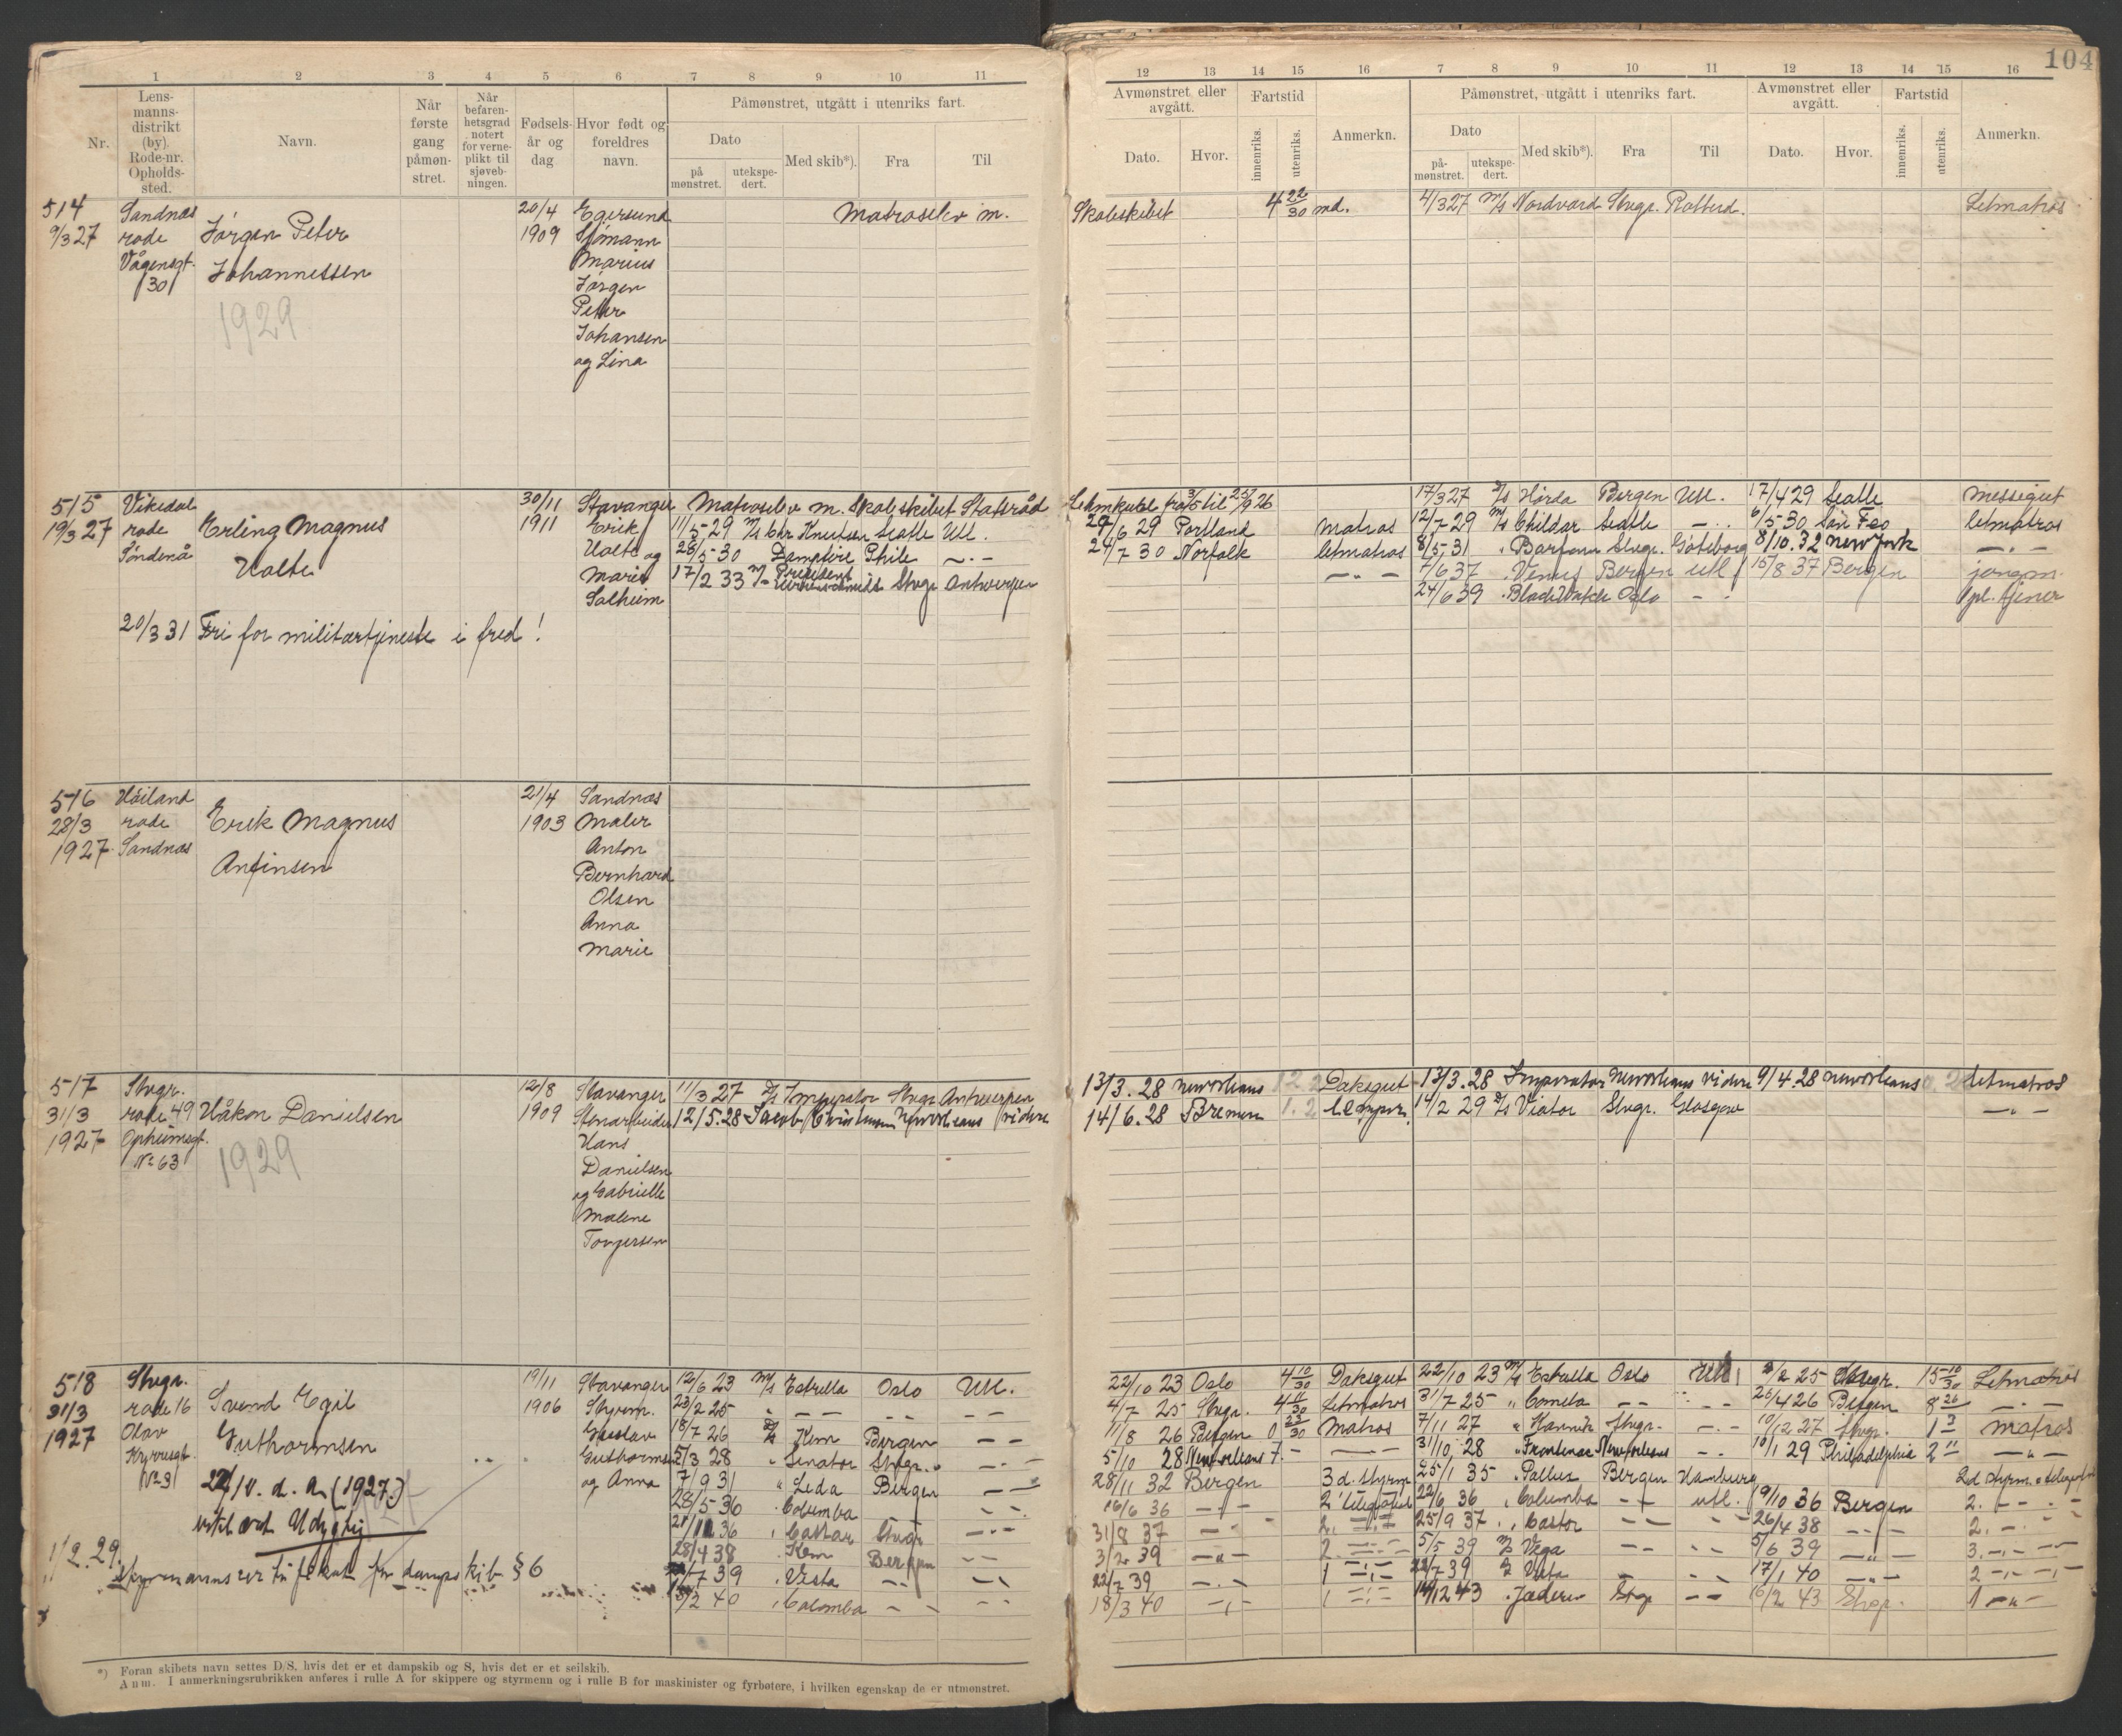 104
1 2 3 4 5 6 7 8 9 10 11
Nr.
Lens-
manns-
distrikt
(by).
Rode-nr.
Opholds-
sted.
Navn.
Når
første
gang
påmøn-
stret.
Når
befaren-
hetsgrad
notert
for verne-
plikt til
sjøveb-
ningen.
Fødsels-
år og
dag
Hvor født og
foreldres
navn.
Påmønstret, utgått i utenriks fart.
Dato
på
mønstret.
utekspe-
dert.
Med skib*).
Fra
Til
12 13 14 15 16 7 8 9 10 11 12 13 14 15 16
Avmønstret eller
avgått.
Dato.
Hvor.
Fartstid
innenriks.
utenriks.
Anmerkn.
Påmønstret, utgått i utenriks fart.
Dato
på-
mønstret.
utekspe-
dert.
Med skib*).
Fra
Til
Avmønstret eller
avgått.
Dato.
Hvor.
Fartstid
innenriks.
utenriks.
Anmerkn.
514
9/3 27
Sandnæs
rode
Vågensgt.
30
Jørgen Peter
Johannessen
1929
20/4
1909
Egersund
Sjømann
Marius
Jørgen
Peter
Johansen
og Lina
Matroselev m. Skoleskibet 4 22/30 md.
4/3 27 M/S Nordvard Stvgr. Rotterd. Letmatros
515
19/3 27
Vikedal
rode
Søndenå
Erling Magnus
Holte
30/11
1911
Stavanger
Erik
Holte og
Marie
Solheim
Matroselev m. Skoleskibet Statsråd Lehmkuhl fra 3/5 til 25/9 26
11/5 29 M/S Chr. Knutsen Seatle Utl. 29/6 29 Portland matros
28/5 30 Phile — . — 24/7 30 Norfolk letmatros
17/2 33 M/S President Stvgr Antwerpen — „ —
17/3 27 D/S Hørda Bergen Utl. 17/4 29 Seatle Messegut
12/7 29 M/S Childar Seatle — . . 6/5 30 San Fco letmatros
8/5 31 Stvgr. Göteborg 8/10.32 New York — „ —
7/6 37 Venus Bergen utl 15/8 37 Bergen jungm.
24/6 39 Black Watch Oslo — . tjener
20/3 31 Fri for militærtjeneste i fred!
516
28/3
1927
Høiland
rode
Sandnæs
Erik Magnus
Anfinsen
21/4
1903
Sandnæs
Maler
Anton
Bernhard
Olsen
Anna
Marie
517
31/3
1927
Stvgr.
rode 49
Opheimsgt.
No 63
Håkon Danielsen
1929
12/8
1909
Stavanger
Stenarbeider
Hans
Danielsen
og Gabrielle
Malene
Torgersen
11/3 27 D/S Imperator Stvgr Antwerpen 13/3.28 New Orleans Dæksgut
12/5.28 Jacob Christensen New Orleans videre 14/6.28 Bremen
13/3.28 Imperator New Orleans videre 9/4.28 New Orleans letmatros
14/2 29 D/S Viator Stvgr. Glasgow — „ —
518
31/3
1927
Stvgr.
rode 16
Olav
Kyrresgt.
No 31
Svend Egil
Guthormsen
22/IV. d. a. (1927)
19/11
1906
Stavanger
Styrm.
Gustav
Guthormsen
og Anna
12/6 23 M/S Estrella Oslo Utl. 22/10 23 Oslo 4 10/30 Dæksgut
23/2 25 „ — — — — 4/7 25 Stvgr. 4 10/30 Letmatros
18/7 26 D/S Kem Bergen — — 11/8 26 Bergen 0 23/30 Matros
5/3 28 „ Senator Stvgr. — . — 5/10 28 New Orleans 7 — — . —
7/9 31 „ Leda Bergen — 28/11 32 Bergen 3 d. styrm
28/5 36 „ Columba 16/6 36 — „ — 2 telegrafist
36 „ Castor Stvgr — . — 31/8 37
28/4 38 . Kem Bergen — — 3/2 39 — „ —
7 39 „ Vesta 22/7 39 — . —
2 40 „ Columba — — 18/3 40 — „ —
22/10 23 M/S Estrella Oslo Utl 2 25 Stvgr. 15 10/30 Letmatros
31/7 25 „ Cometa — — 26/4 26 Bergen 8 26 — „ —
7/11 27 Stvgr. 10/12 27 Stvgr. 1 3 matros
31/10 28 „ Frontenac New Orleans 10/1 29 Philadelphia 2 11 — „ —
25/1 35 . Pollux Bergen Hamburg 2d styrm. o telegrafist
22/6 36 . Columba — utl. 19/10 36 Bergen 2.
25/9 37 . Castor — — 26/4 38 — „ — 2.
5/5 39 Vega 5/6 39 — „ — 3.
22/7 39 Vesta 17/1 40 — „ — 2
43 . Jæderen Stvgr — — 16/2 43 Stvgr. 1 — „ —
1/2.29. Styrmannscertifikat for dampskib § 6
*) Foran skibets navn settes D/S, hvis det er et dampskib og S, hvis det er et seilskib.
Anm. I anmerkningsrubrikken anføres i rulle A for skippere og styrmenn og i rulle B for maskinister og fyrbøtere, i hvilken egenskap de er utmønstret.